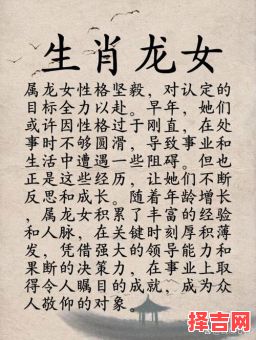 生肖龙女
属龙女性格坚毅，对认定的
目标全力以赴。早年，她们
或许因性格过于刚直，在处
事时不够圆滑，导致事业和
生活中遭遇一些阻碍。但也
正是这些经历，让她们不断
反思和成长。随着年龄增长
，属龙女积累了丰富的经验
和人脉，在关键时刻厚积薄
发，凭借强大的领导能力和
果断的决策力，在事业上取
得令人瞩目的成就，成为众
人敬仰的对象。
择吉网